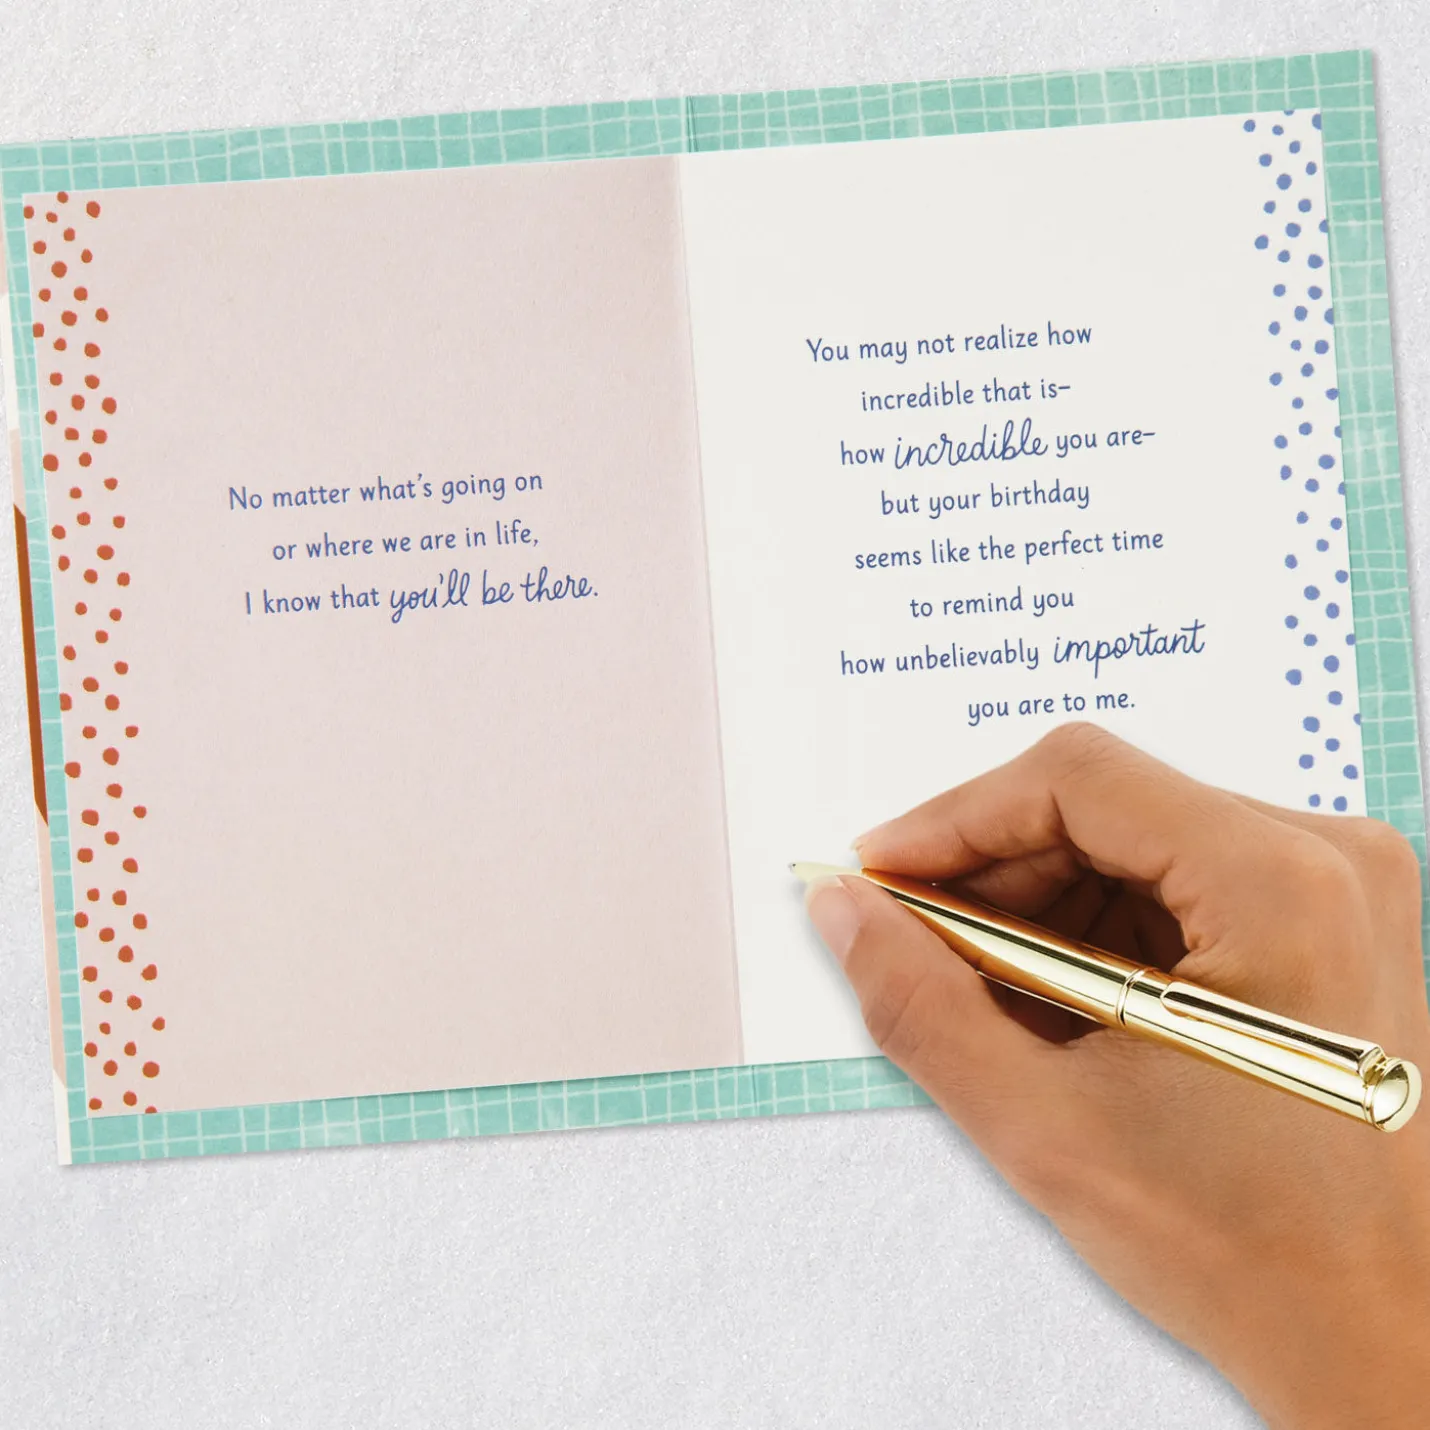 No matter what's going on
or where we are in life,
I know that you'll be there.
You may not realize how
incredible that is–
how incredible you are–
but your birthday
seems like the perfect time
to remind you
how unbelievably important
you are to me.